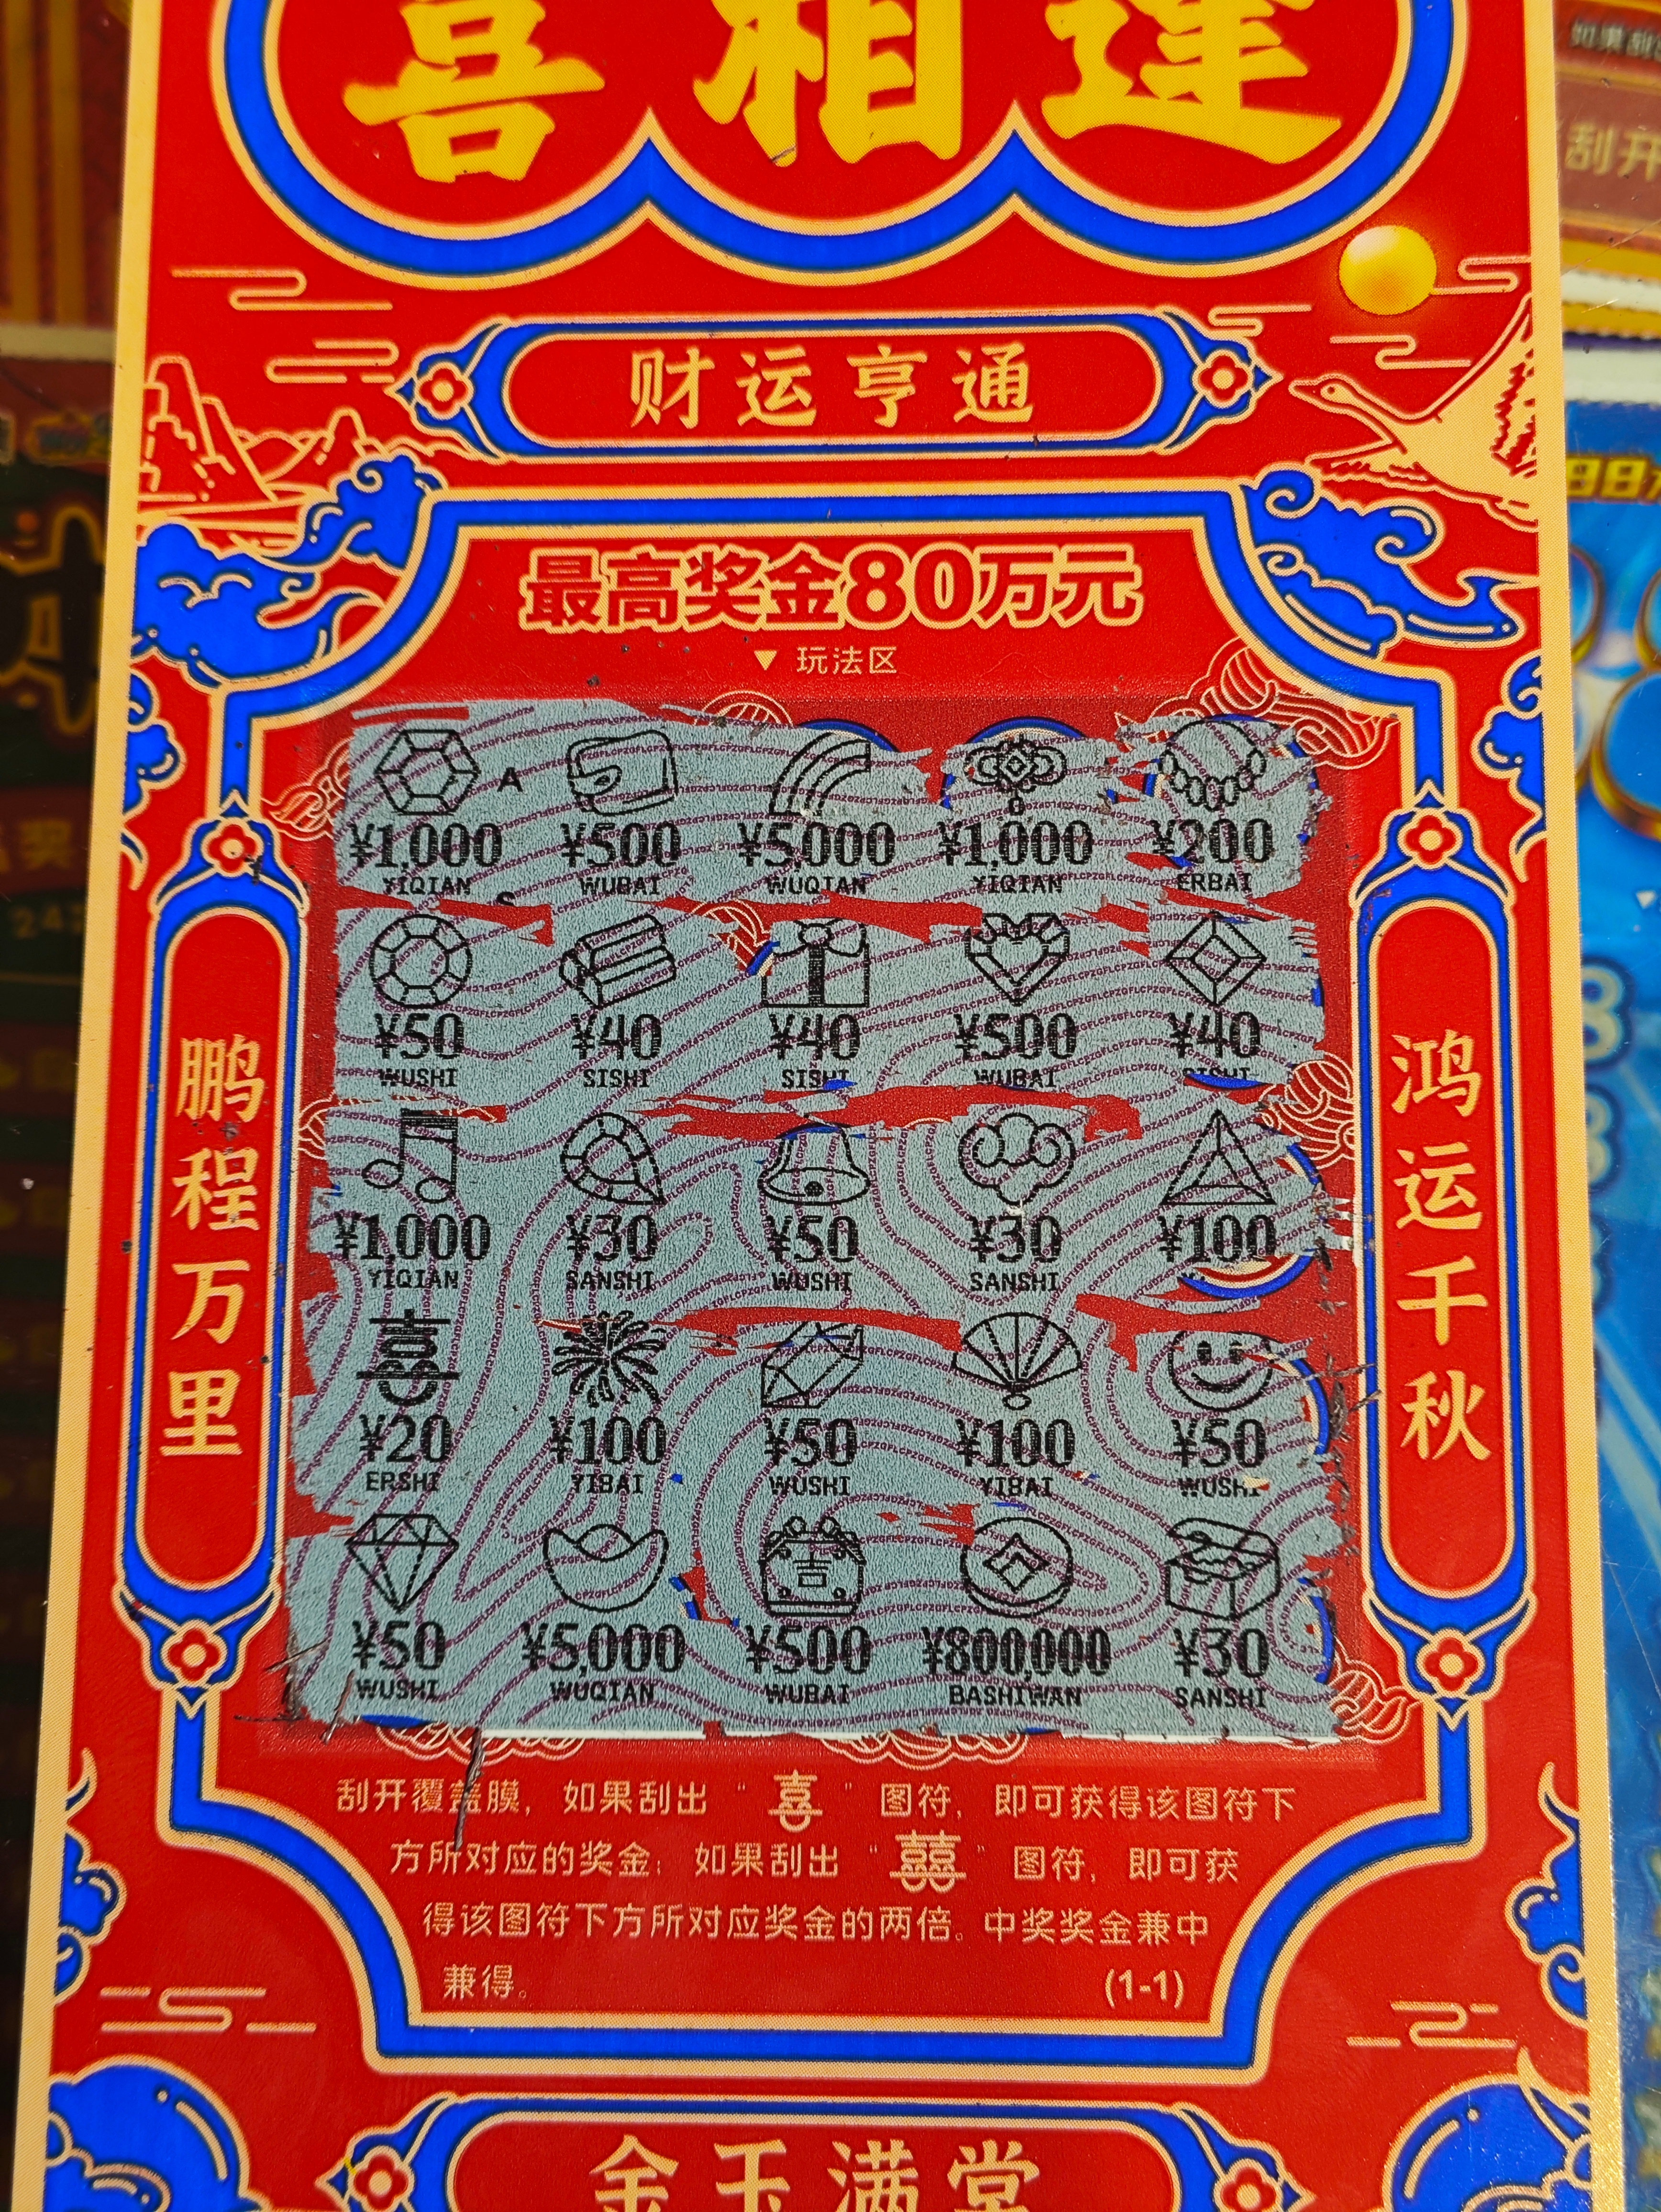 喜相逢
财运亨通
最高奖金80万元
▼ 玩法区
鹏程万里
鸿运千秋
A
¥1,000 ¥500 ¥5,000 ¥1,000 ¥200
YIQIAN WUBAI WUQIAN YIQIAN ERBAI
S
¥50 ¥40 ¥40 ¥500 ¥40
WUSHI SISHI SISHI WUBAI SISHI
¥1,000 ¥30 ¥50 ¥30 ¥100
YIQIAN SANSHI WUSHI SANSHI
喜
¥20 ¥100 ¥50 ¥100 ¥50
ERSHI YIBAI WUSHI YIBAI WUSHI
吉
¥50 ¥5,000 ¥500 ¥800,000 ¥30
WUSHI WUQIAN WUBAI BASHIWAN SANSHI
刮开覆盖膜，如果刮出“喜”图符，即可获得该图符下
方所对应的奖金；如果刮出“囍”图符，即可获
得该图符下方所对应奖金的两倍。中奖奖金兼中
兼得。 (1-1)
金玉满堂
如果刮
刮开